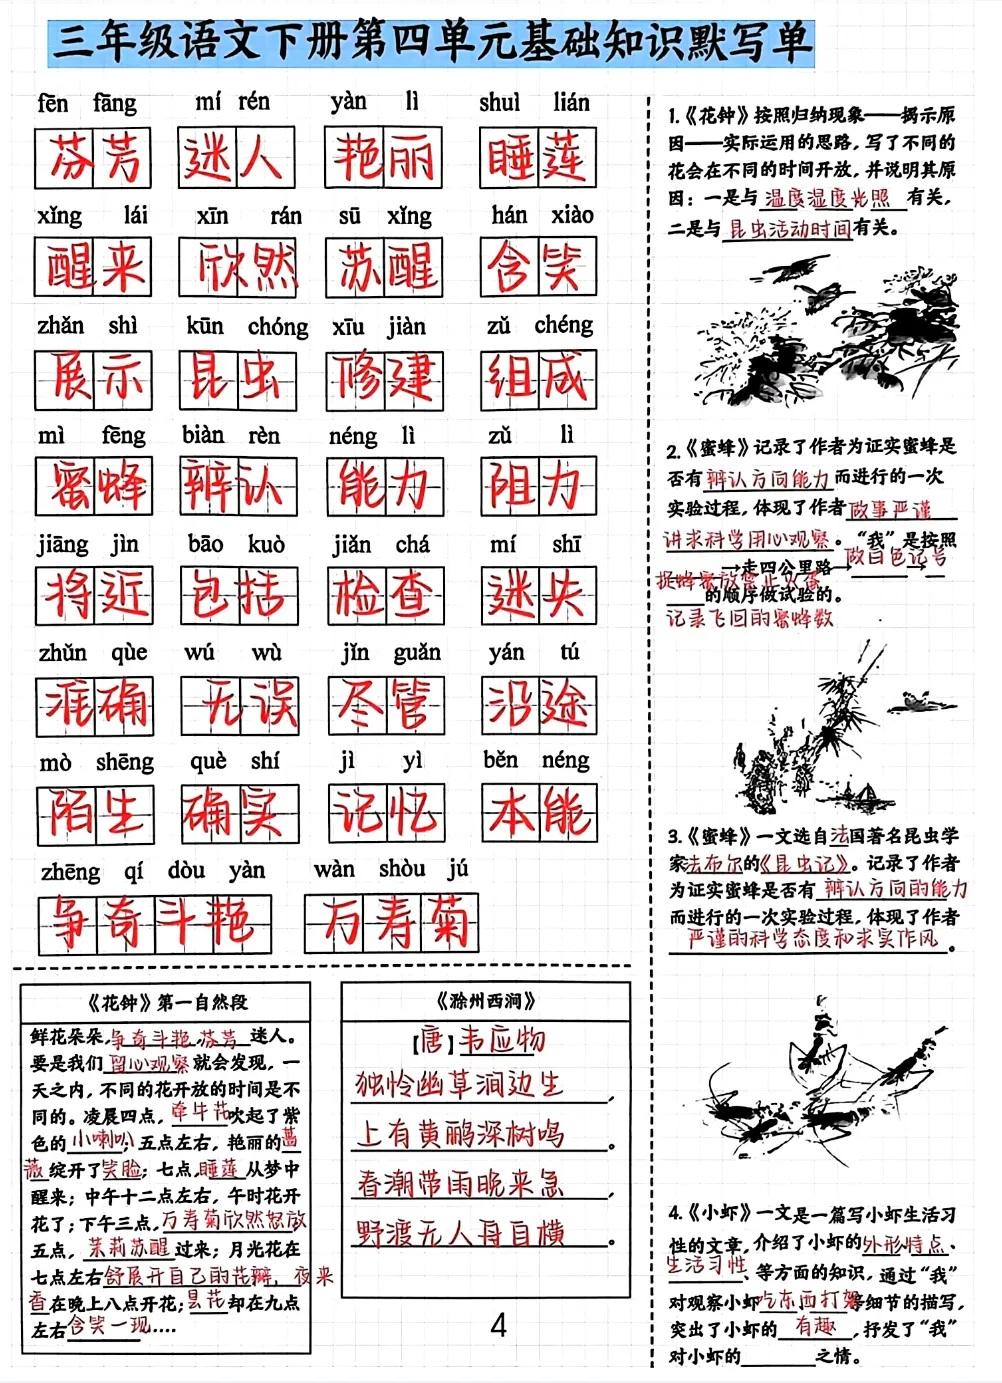 三年级语文下册第四单元基础知识默写单
fēn fāng mí rén yàn lì shuì lián
芬芳 迷人 艳丽 睡莲
xǐng lái xīn rán sū xǐng hán xiào
醒来 欣然 苏醒 含笑
zhǎn shì kūn chóng xīu jiàn zǔ chéng
展示 昆虫 修建 组成
mì fēng biàn rèn néng lì zǔ lì
蜜蜂 辨认 能力 阻力
jiāng jìn bāo kuò jiǎn chá mí shī
将近 包括 检查 迷失
zhǔn què wú wù jǐn guǎn yán tú
准确 无误 尽管 沿途
mò shēng què shí jì yì běn néng
陌生 确实 记忆 本能
zhēng qí dòu yàn wàn shòu jú
争奇斗艳 万寿菊
《花钟》第一自然段
鲜花朵朵,争奇斗艳,芬芳迷人。
要是我们留心观察就会发现，一
天之内，不同的花开放的时间是不
同的。凌晨四点，牵牛花吹起了紫
色的小喇叭;五点左右，艳丽的蔷
薇绽开了笑脸；七点,睡莲从梦中
醒来；中午十二点左右，午时花开
花了；下午三点,万寿菊欣然怒放
五点，茉莉苏醒过来；月光花在
七点左右舒展开自己的花瓣，夜来
香在晚上八点开花；昙花却在九点
左右含笑一现....
《滁州西涧》
【唐】韦应物
独怜幽草涧边生，
上有黄鹂深树鸣。
春潮带雨晚来急，
野渡无人舟自横。
4
1.《花钟》按照归纳现象——揭示原
因——实际运用的思路，写了不同的
花会在不同的时间开放，并说明其原
因：一是与温度湿度光照有关，
二是与昆虫活动时间有关。
2.《蜜蜂》记录了作者为证实蜜蜂是
否有辨认方向能力而进行的一次
实验过程，体现了作者做事严谨
讲求科学用心观察。“我”是按照
做白色记号
→走四公里路→ →
捉蜂蜜放
的顺序做试验的。
记录飞回的蜜蜂数
3.《蜜蜂》一文选自法国著名昆虫学
家法布尔的《昆虫记》。记录了作者
为证实蜜蜂是否有辨认方向的能力
而进行的一次实验过程，体现了作者
严谨的科学态度和求实作风。
4.《小虾》一文是一篇写小虾生活习
性的文章，介绍了小虾的外形特点、
生活习性、等方面的知识，通过“我”
对观察小虾吃东西打架等细节的描写，
突出了小虾的有趣,抒发了“我”
对小虾的 之情。